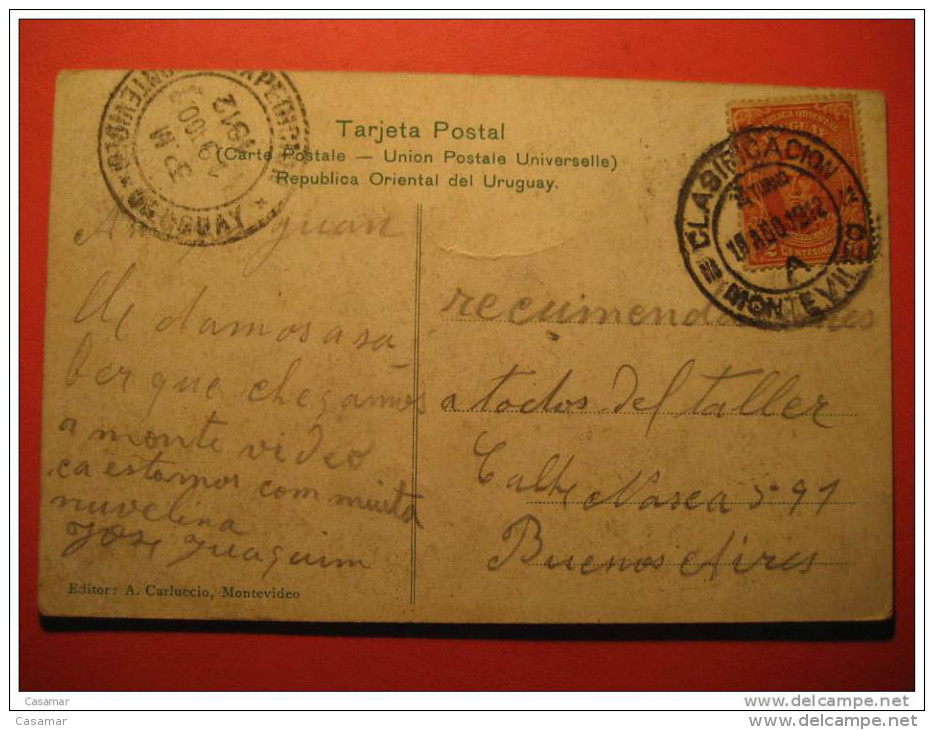 Tarjeta Postal
(Carte Postale — Union Postale Universelle)
Republica Oriental del Uruguay.
MONTEVIDEO
1912
URUGUAY
CLASIFICACION
TURNO
AGO. 1912
A
MONTEVIDEO
CENTESIMOS
Juan
damos a sa
ber que chegamos
a monte video
ca estamos com muita
nuvelina
José Juaquim
recumendaciones
a todos del taller
Calle Nasca 591
Buenos Aires
Editor: A. Carluccio, Montevideo
Casamar
www.delcampe.net
Casamar
www.delcampe.net